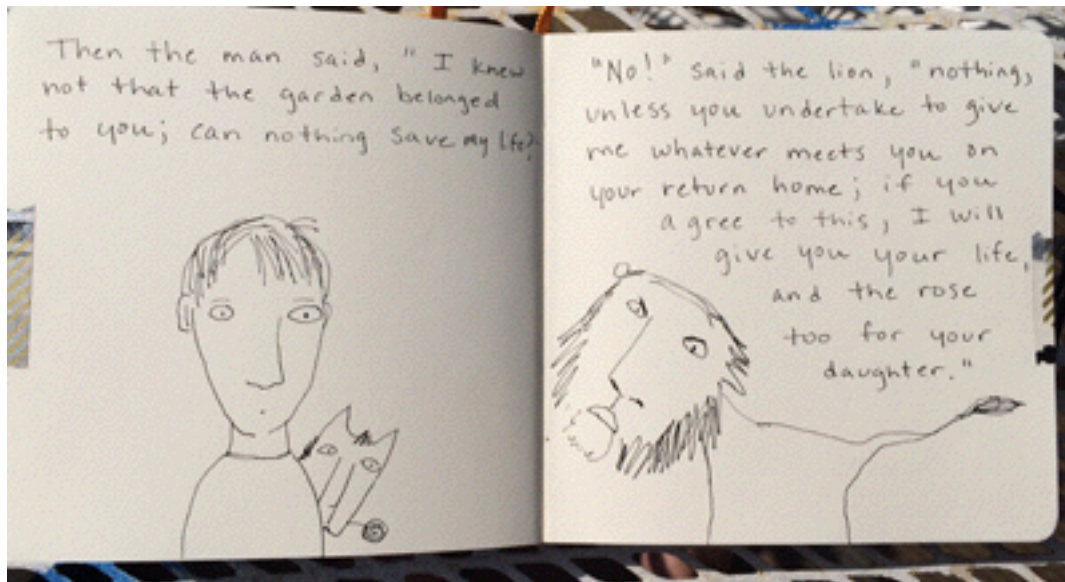 Then the man said, "I knew
not that the garden belonged
to you; can nothing save my life?
"No!" said the lion, "nothing,
unless you undertake to give
me whatever meets you on
your return home; if you
agree to this, I will
give you your life,
and the rose
too for your
daughter."